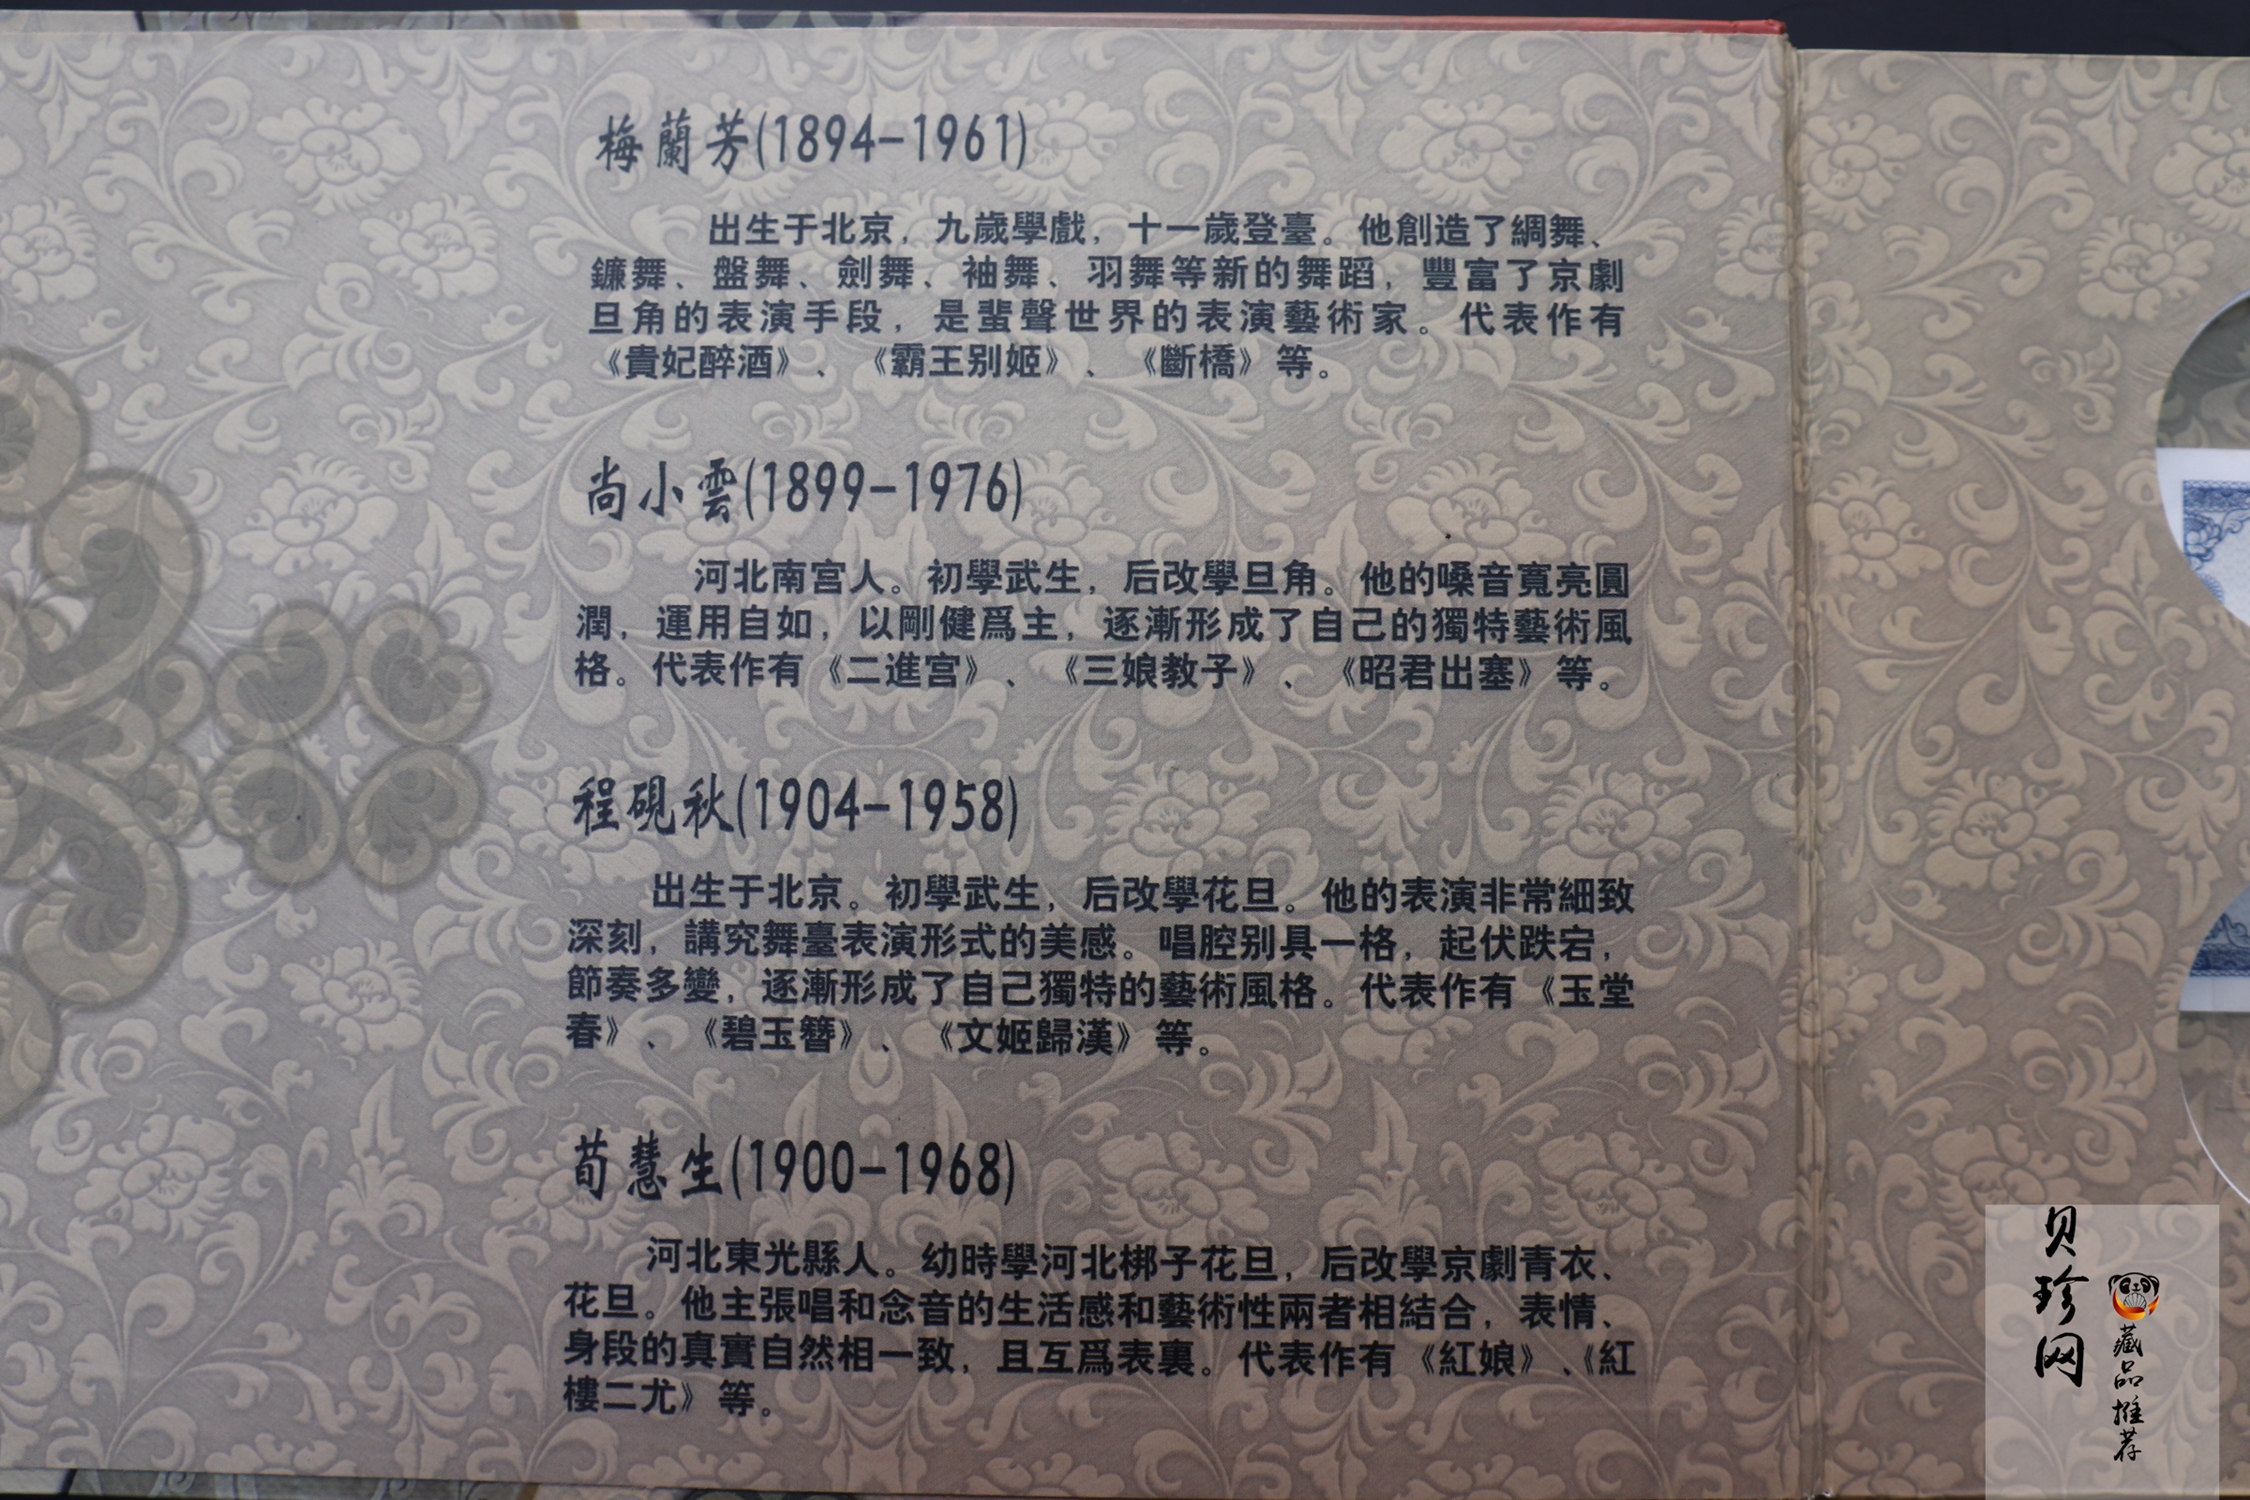 梅蘭芳(1894-1961)
出生于北京，九歲學戲，十一歲登臺。他創造了綢舞、
鐮舞、盤舞、劍舞、袖舞、羽舞等新的舞蹈，豐富了京劇
旦角的表演手段，是蜚聲世界的表演藝術家。代表作有
《貴妃醉酒》、《霸王别姬》、《斷橋》等。
尚小雲(1899-1976)
河北南宮人。初學武生，后改學旦角。他的嗓音寬亮圓
潤，運用自如，以剛健爲主，逐漸形成了自己的獨特藝術風
格。代表作有《二進宮》、《三娘教子》、《昭君出塞》等。
程硯秋(1904-1958)
出生于北京。初學武生，后改學花旦。他的表演非常細致
深刻，講究舞臺表演形式的美感。唱腔别具一格，起伏跌宕，
節奏多變，逐漸形成了自己獨特的藝術風格。代表作有《玉堂
春》、《碧玉簪》、《文姬歸漢》等。
荀慧生(1900-1968)
河北東光縣人。幼時學河北梆子花旦，后改學京劇青衣、
花旦。他主張唱和念音的生活感和藝術性兩者相結合，表情、
身段的真實自然相一致，且互爲表裏。代表作有《紅娘》、《紅
樓二尤》等。
贝珍网
藏品推荐